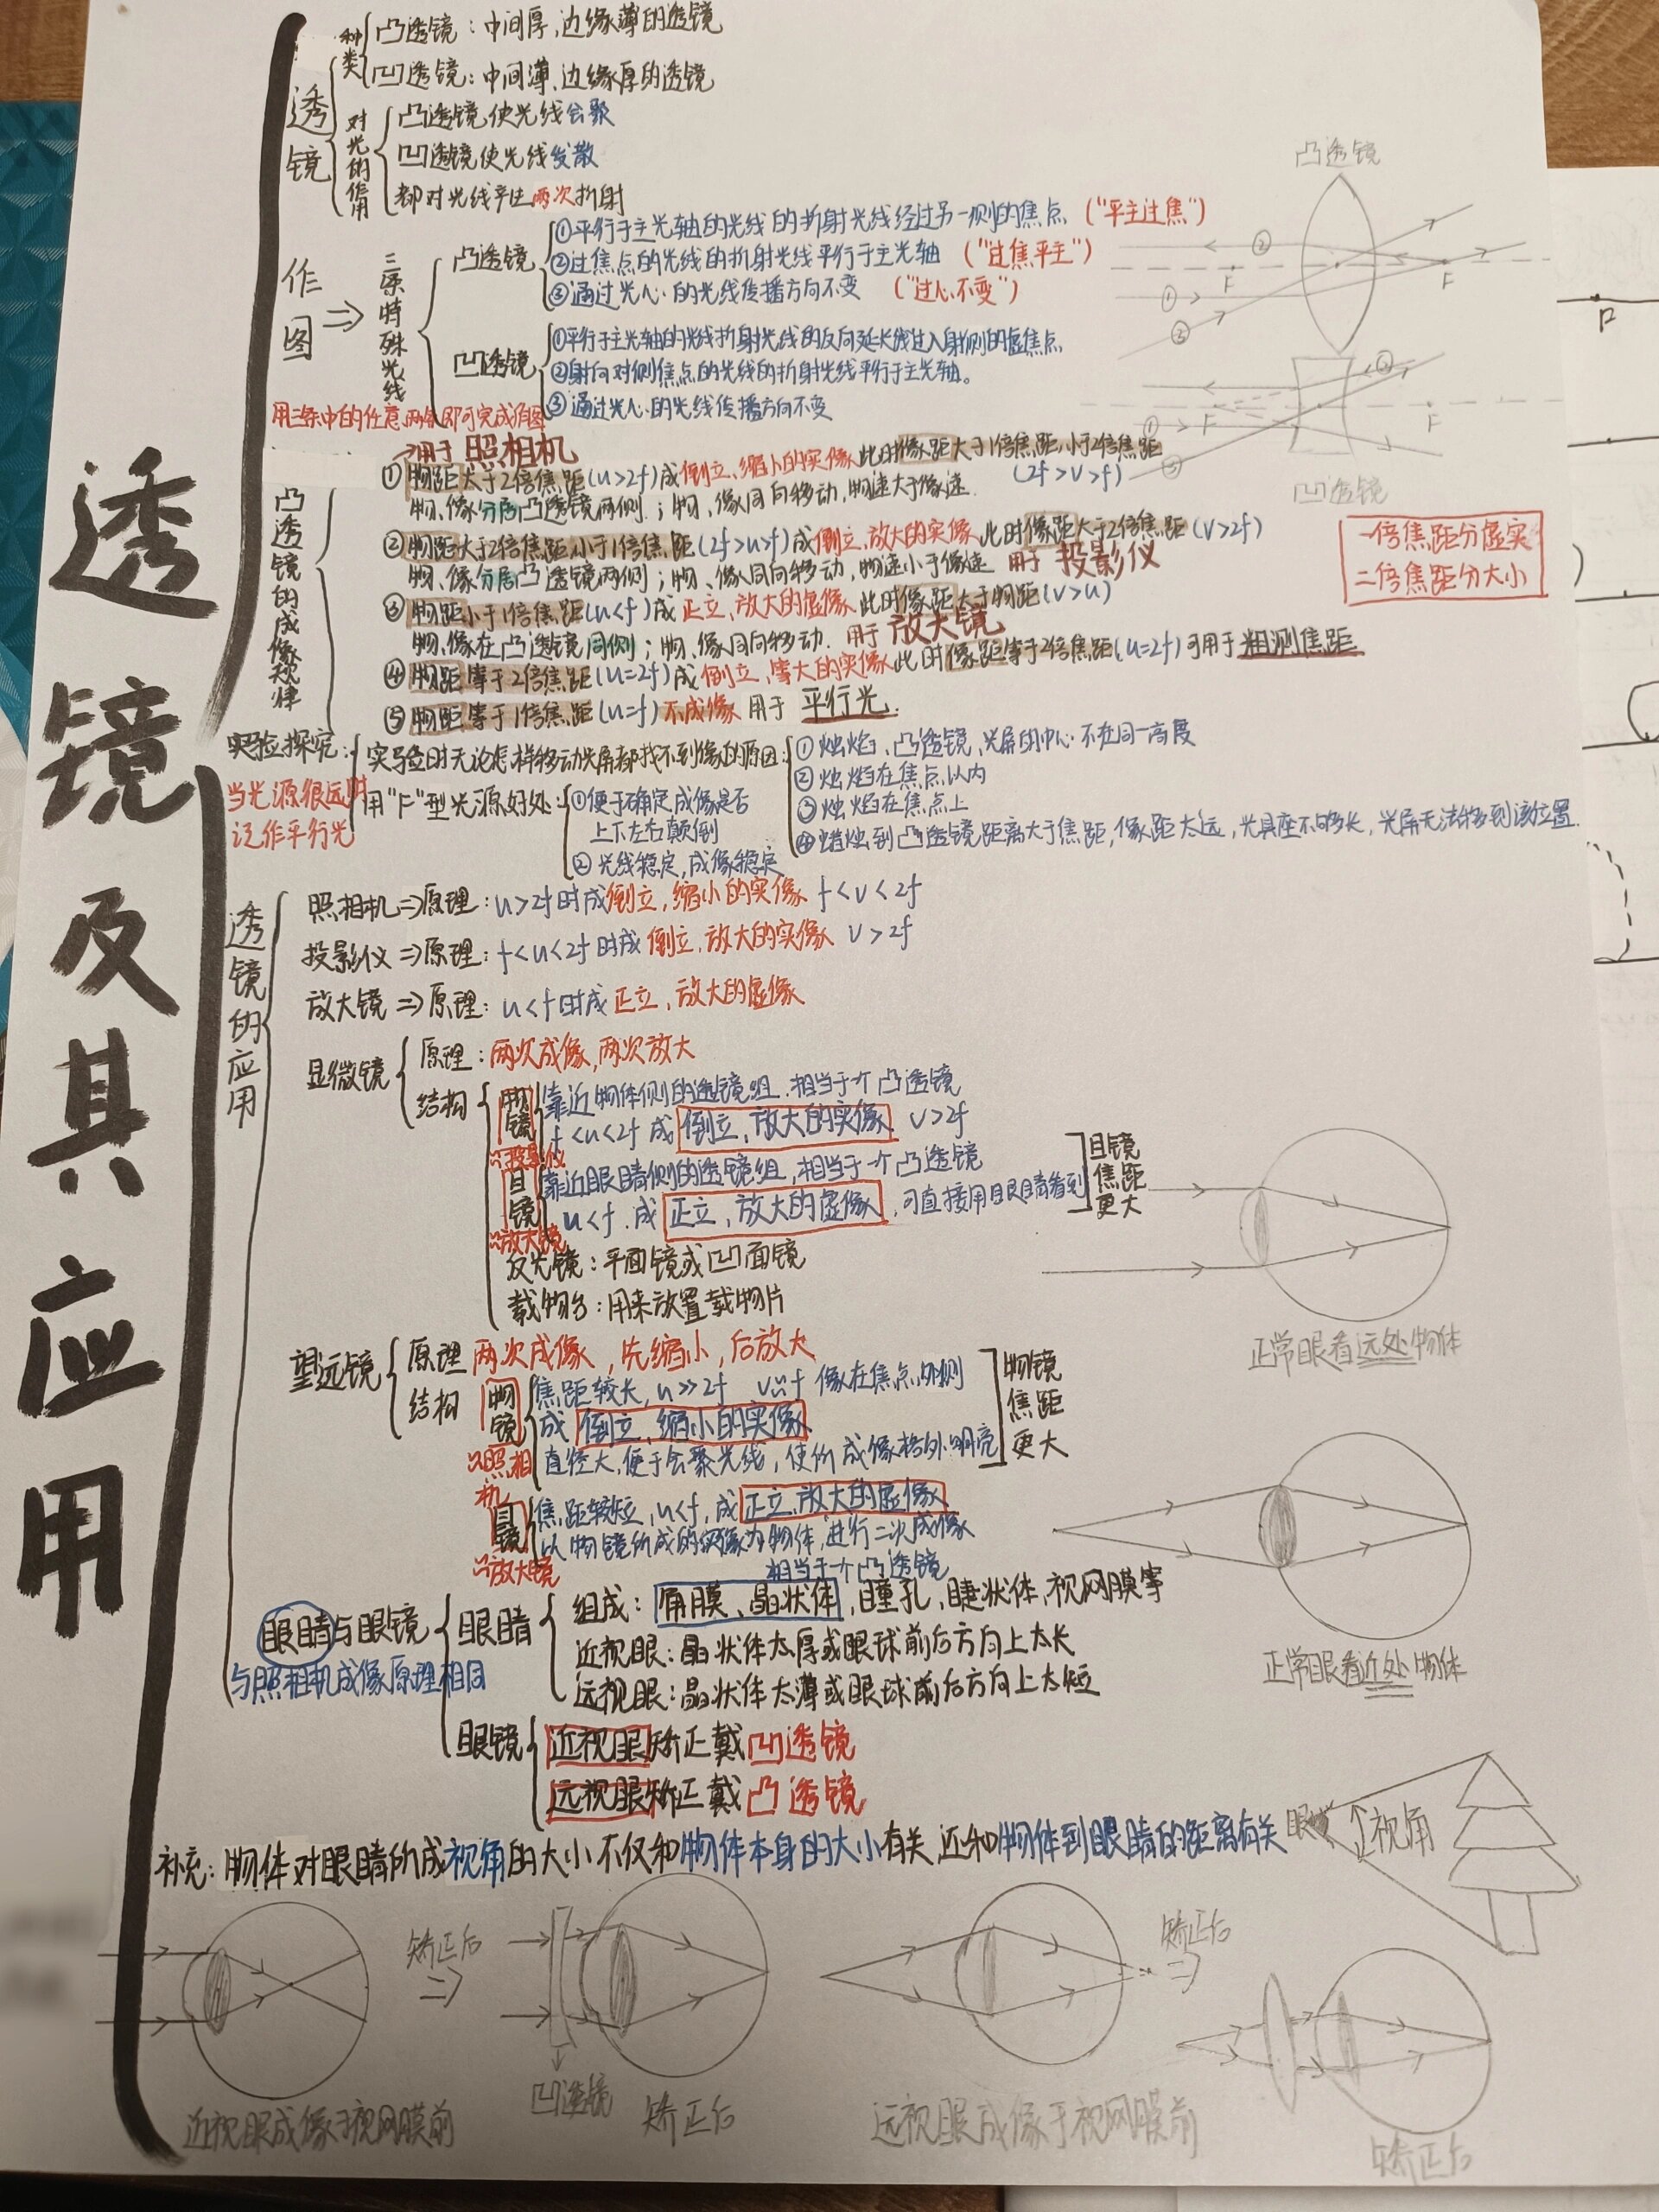 透镜及其应用
透镜
种类
凸透镜：中间厚,边缘薄的透镜
凹透镜：中间薄,边缘厚的透镜
对光的作用
凸透镜使光线会聚
凹透镜使光线发散
都对光线产生两次折射
作图⇒三条特殊光线
凸透镜
①平行于主光轴的光线的折射光线经过另一侧的焦点 ("平主过焦")
②过焦点的光线的折射光线平行于主光轴 ("过焦平主")
③通过光心的光线传播方向不变 ("过心不变")
凹透镜
①平行于主光轴的光线折射光线的反向延长线过入射侧的虚焦点
②射向对侧焦点的光线的折射光线平行于主光轴。
③通过光心的光线传播方向不变
用三条中的任意两条即可完成作图
凸透镜
② F F ① ③
② ① F F ③
凹透镜
凸透镜的成像规律
→用于 照相机
①物距大于2倍焦距(u>2f)成倒立、缩小的实像 此时像距大于1倍焦距,小于2倍焦距
(2f>v>f)
物、像分居凸透镜两侧；物、像同向移动,物速大于像速.
②物距大于2倍焦距,小于1倍焦距(2f>u>f)成倒立、放大的实像 此时像距大于2倍焦距(v>2f)
物、像分居凸透镜两侧；物、像同向移动,物速小于像速 用于 投影仪
③物距小于1倍焦距(u<f)成 正立、放大的虚像 此时像距大于物距(v>u)
物、像在凸透镜同侧；物、像同向移动. 用于 放大镜
④物距等于2倍焦距(u=2f)成 倒立、等大的实像 此时像距等于2倍焦距(u=2f)可用于粗测焦距
⑤物距等于1倍焦距(u=f)不成像 用于 平行光.
一倍焦距分虚实
二倍焦距分大小
实验探究：
当光源很远时
记作平行光
实验时无论怎样移动光屏都找不到像的原因:
①烛焰、凸透镜、光屏的中心不在同一高度
②烛焰在焦点以内
③烛焰在焦点上
④蜡烛到凸透镜距离大于焦距,像距太远,光具座不够长,光屏无法移到该位置.
用"F"型光源好处:
①便于确定成像是否
上下左右颠倒
②光线稳定,成像稳定
透镜的应用
照相机⇒原理：u>2f时成倒立,缩小的实像 f<v<2f
投影仪⇒原理：f<u<2f时成 倒立,放大的实像 v>2f
放大镜⇒原理：u<f时成 正立,放大的虚像
显微镜
原理：两次成像,两次放大
结构
物镜
靠近物体侧的透镜组,相当于个凸透镜
f<u<2f 成 倒立,放大的实像 v>2f
∽投影仪
目镜
靠近眼睛侧的透镜组,相当于个凸透镜
u<f.成 正立,放大的虚像 ,可直接用眼睛看到
∽放大镜
目镜焦距更大
反光镜：平面镜或凹面镜
载物台：用来放置载物片
正常眼看远处物体
望远镜
原理 两次成像,先缩小,后放大
结构
物镜
焦距较长,u≫2f v∽f 像在焦点外侧
成 倒立,缩小的实像
直径大,便于会聚光线,使所成像格外明亮
∽照相机
物镜焦距更大
目镜
焦距较短,u<f,成 正立,放大的虚像
以物镜所成的实像为物体,进行二次成像
相当于个凸透镜
∽放大镜
正常眼看近处物体
眼睛与眼镜
与照相机成像原理相同
眼睛
组成：角膜、晶状体,瞳孔,睫状体,视网膜等
近视眼：晶状体太厚或眼球前后方向上太长
远视眼：晶状体太薄或眼球前后方向上太短
眼镜
近视眼矫正戴凹透镜
远视眼矫正戴凸透镜
补充：物体对眼睛所成视角的大小不仅和物体本身的大小有关,还和物体到眼睛的距离有关
眼 视角
矫正后
⇒
矫正后
⇒
近视眼成像于视网膜前
凹透镜
矫正后
远视眼成像于视网膜前
矫正后